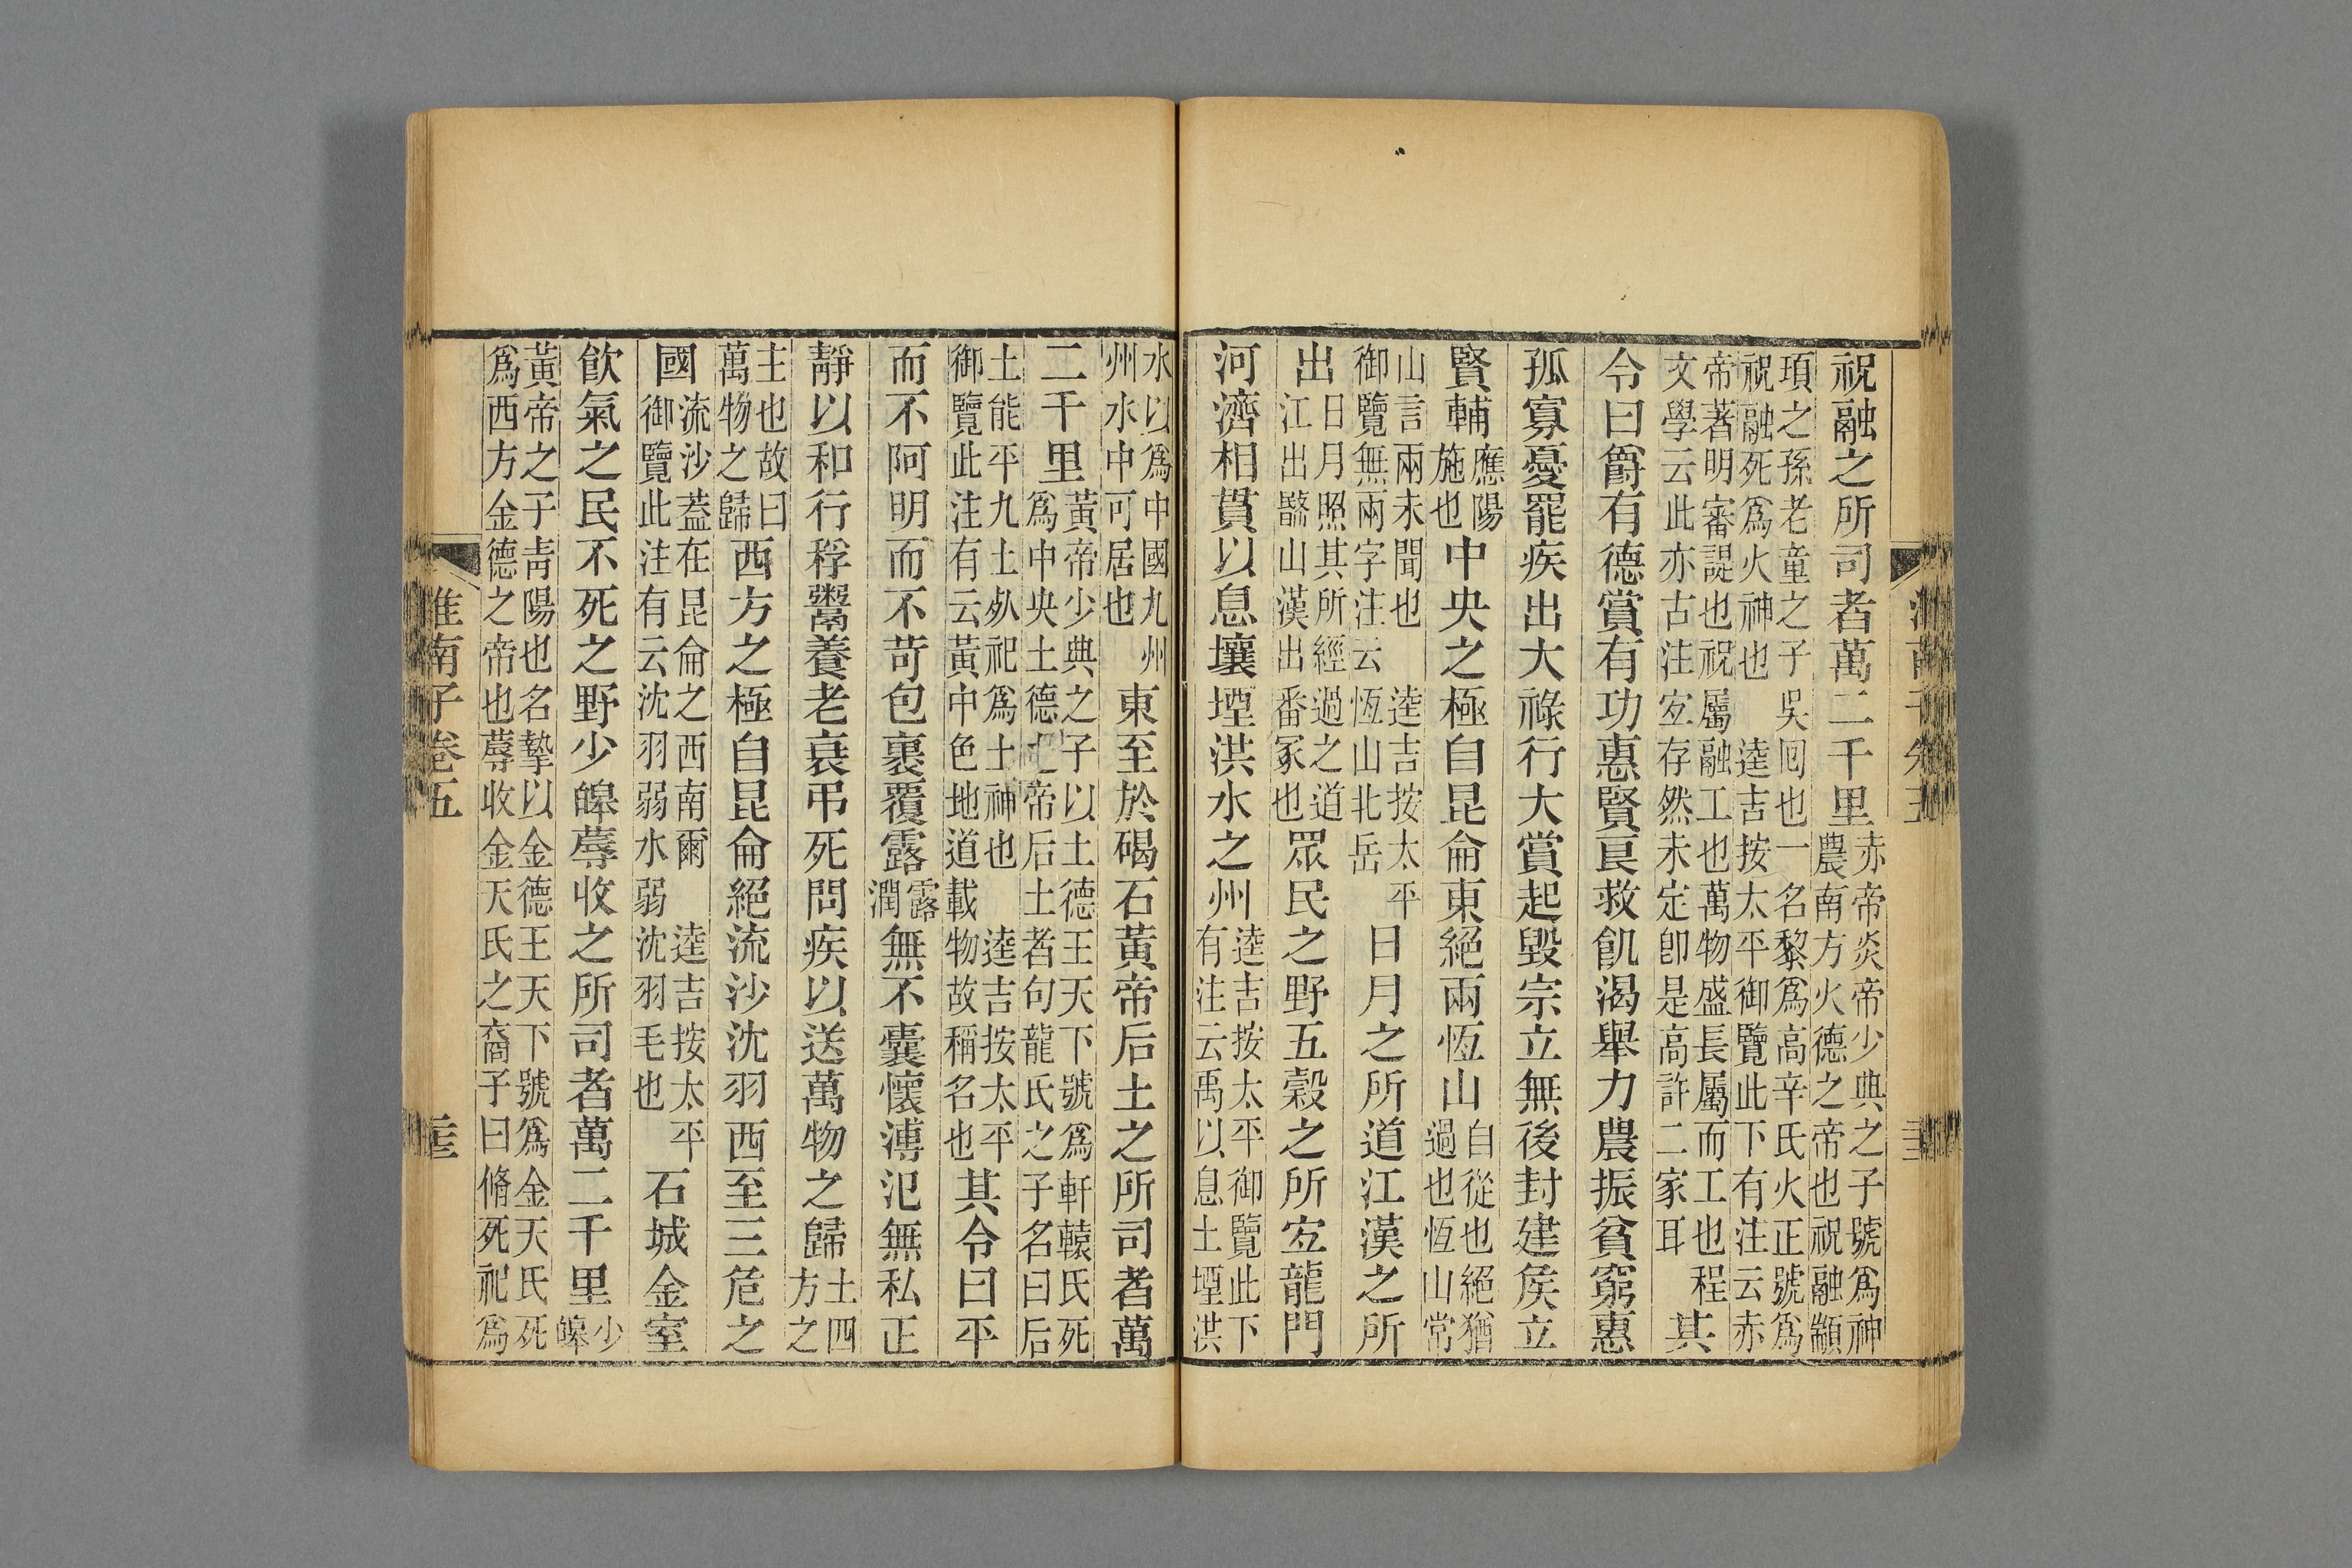 祝融之所司者萬二千里赤帝炎帝少典之子號爲神農南方火德之帝也祝融顓
頊之孫老童之子吳回也一名黎爲高辛氏火正號爲祝融死爲火神也逵吉按太平御覽此下有注云赤
帝著明審諟也祝屬融工也萬物盛長屬而工也程文學云此亦古注宐存然未定卽是高許二家耳其
令曰爵有德賞有功惠賢良救飢渴舉力農振貧窮惠
孤寡憂罷疾出大祿行大賞起毀宗立無後封建侯立
賢輔應陽施也中央之極自昆侖東絕兩恆山自從也絕猶過也恆山常
山言兩未聞也逵吉按太平御覽無兩字注云恆山北岳日月之所道江漢之所
出日月照其所經過之道江出山漢出番冢也眾民之野五穀之所宐龍門
河濟相貫以息壤堙洪水之州逵吉按太平御覽此下有注云禹以息土堙洪
水以爲中國九州州水中可居也東至於碣石黃帝后土之所司者萬
二千里黃帝少典之子以土德王天下號爲軒轅氏死爲中央土德之帝后土者句龍氏之子名曰后
土能平九土死祀爲土神也逵吉按太平御覽此注有云黃中色地道載物故稱名也其令曰平
而不阿明而不苛包裹覆露露潤無不囊懷溥氾無私正
靜以和行稃鬻養老衰弔死問疾以送萬物之歸土四方之
主也故曰萬物之歸西方之極自昆侖絕流沙沈羽西至三危之
國流沙蓋在昆侖之西南爾逵吉按太平御覽此注有云沈羽弱水弱沈羽毛也石城金室
飲氣之民不死之野少皞蓐收之所司者萬二千里少皞
黃帝之子靑陽也名摯以金德王天下號爲金天氏死爲西方金德之帝也蓐收金天氏之裔子曰脩死祀爲
淮南子卷五